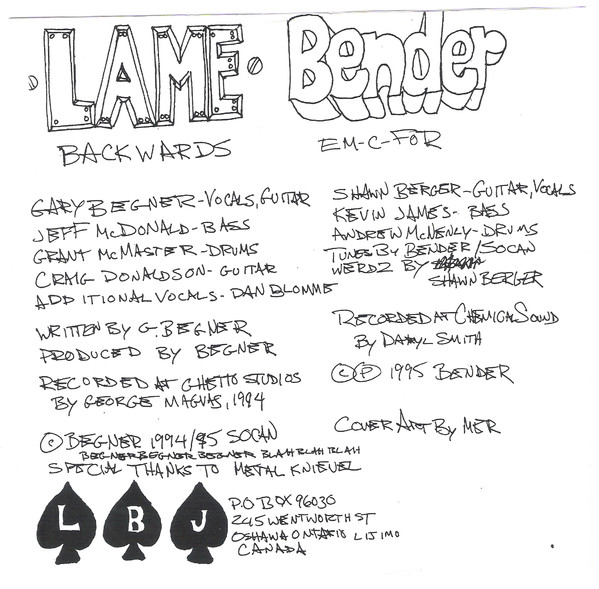 LAME
BACKWARDS
GARY BEGNER-VOCALS, GUITAR
JEFF McDONALD-BASS
GRANT McMASTER-DRUMS
CRAIG DONALDSON-GUITAR
ADDITIONAL VOCALS-DAN BLOMME
WRITTEN BY G. BEGNER
PRODUCED BY BEGNER
RECORDED AT GHETTO STUDIOS
BY GEORGE MAGUAS, 1994
© BEGNER 1994/95 SOCAN
BEGNER BEGNER BEGNER BLAH BLAH BLAH
SPECIAL THANKS TO METAL KNIEVEL
Bender
EM-C-FOR
SHAWN BERGER-GUITAR, VOCALS
KEVIN JAMES-BASS
ANDREW McNENLY-DRUMS
TUNES BY BENDER/SOCAN
WERDZ BY
SHAWN BERGER
RECORDED AT CHEMICAL SOUND
BY DARYL SMITH
© Ⓟ 1995 BENDER
COVER ART BY MER
L B J
P.O BOX 96030
245 WENTWORTH ST
OSHAWA ONTARIO L1J 1M0
CANADA